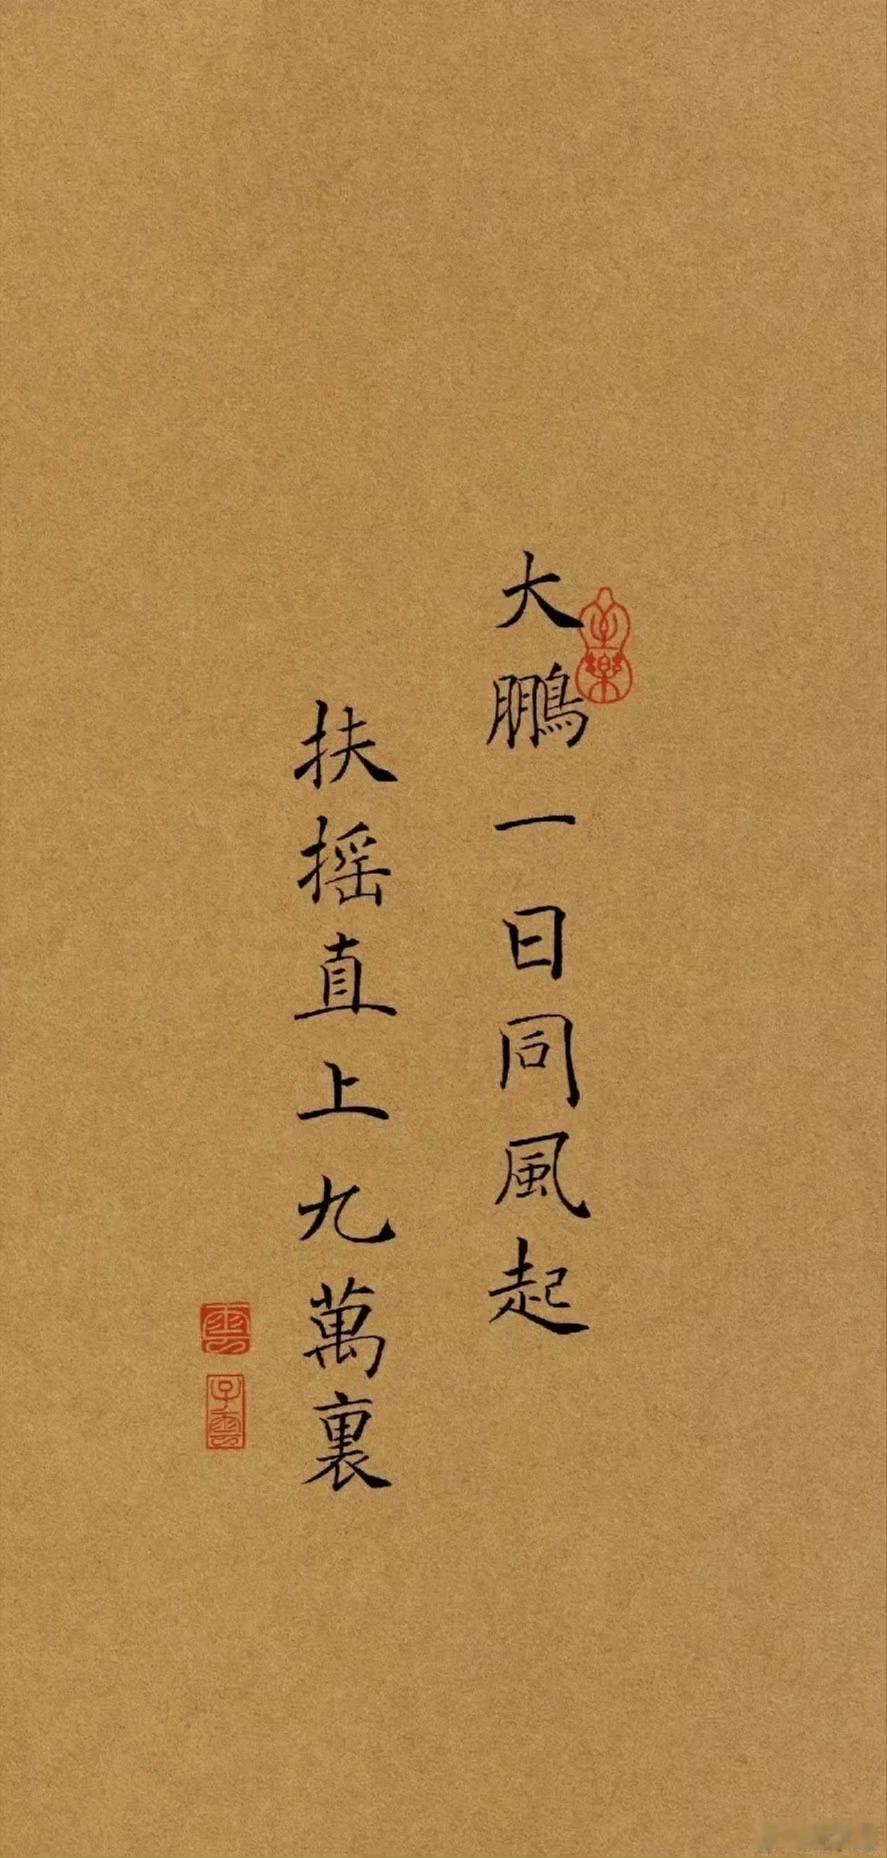 大鵬一日同風起
扶摇直上九萬裏
子雲